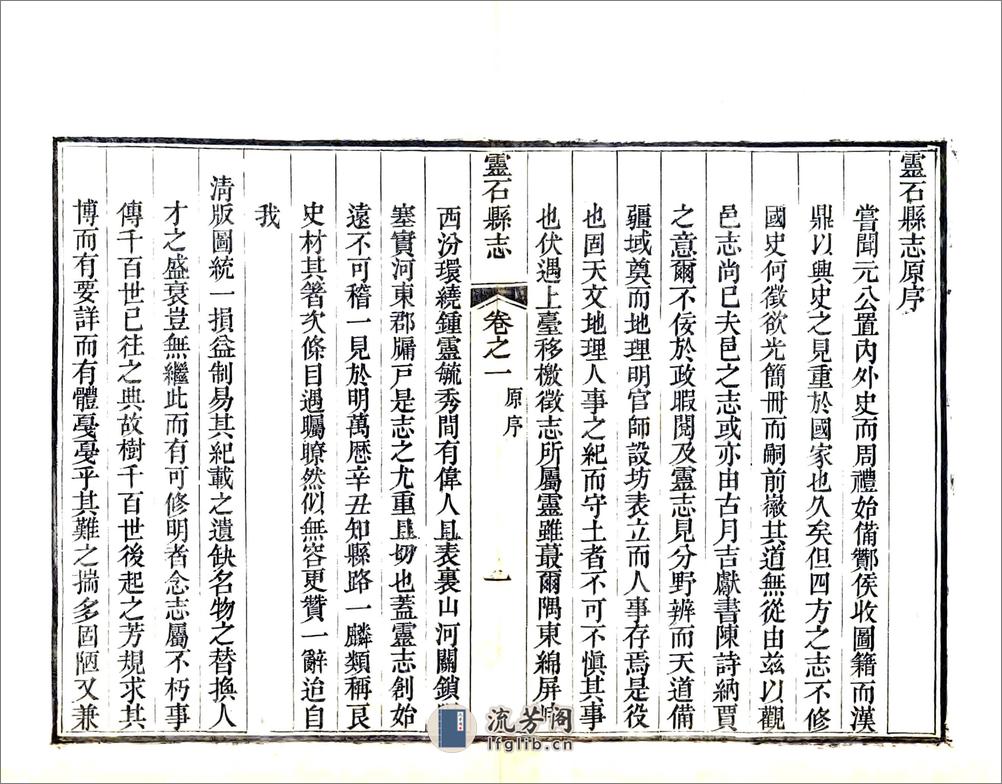 靈石縣志原序
嘗聞元公置內外史而周禮始備酇侯收圖籍而漢
鼎以興史之見重於國家也久矣但四方之志不修
國史何徵欲光簡冊而嗣前徽其道無從由茲以觀
邑志尚已夫邑之志或亦由古月吉獻書陳詩納賈
之意爾不佞於政暇閱及靈志見分野辨而天道備
疆域奠而地理明官師設坊表立而人事存焉是役
也固天文地理人事之紀而守土者不可不慎其事
也伏遇上臺移檄徵志所屬靈雖蕞爾隅東綿屏
靈石縣志
卷之一
原序
一
西汾環繞鍾靈毓秀問有偉人且表裏山河關鎖
塞實河東郡牖戶是志之尤重且切也蓋靈志創始
遠不可稽一見於明萬厯辛丑知縣路一麟類稱良
史材其箸次條目過矚暸然似無容更贊一辭迨自
我
淸版圖統一損益制易其紀載之遺缺名物之替換人
才之盛衰豈無繼此而有可修明者念志屬不朽事
傳千百世已往之典故樹千百世後起之芳規求其
博而有要詳而有體戞戞乎其難之揣多固陋又兼
流芳阁
lfglib.cn